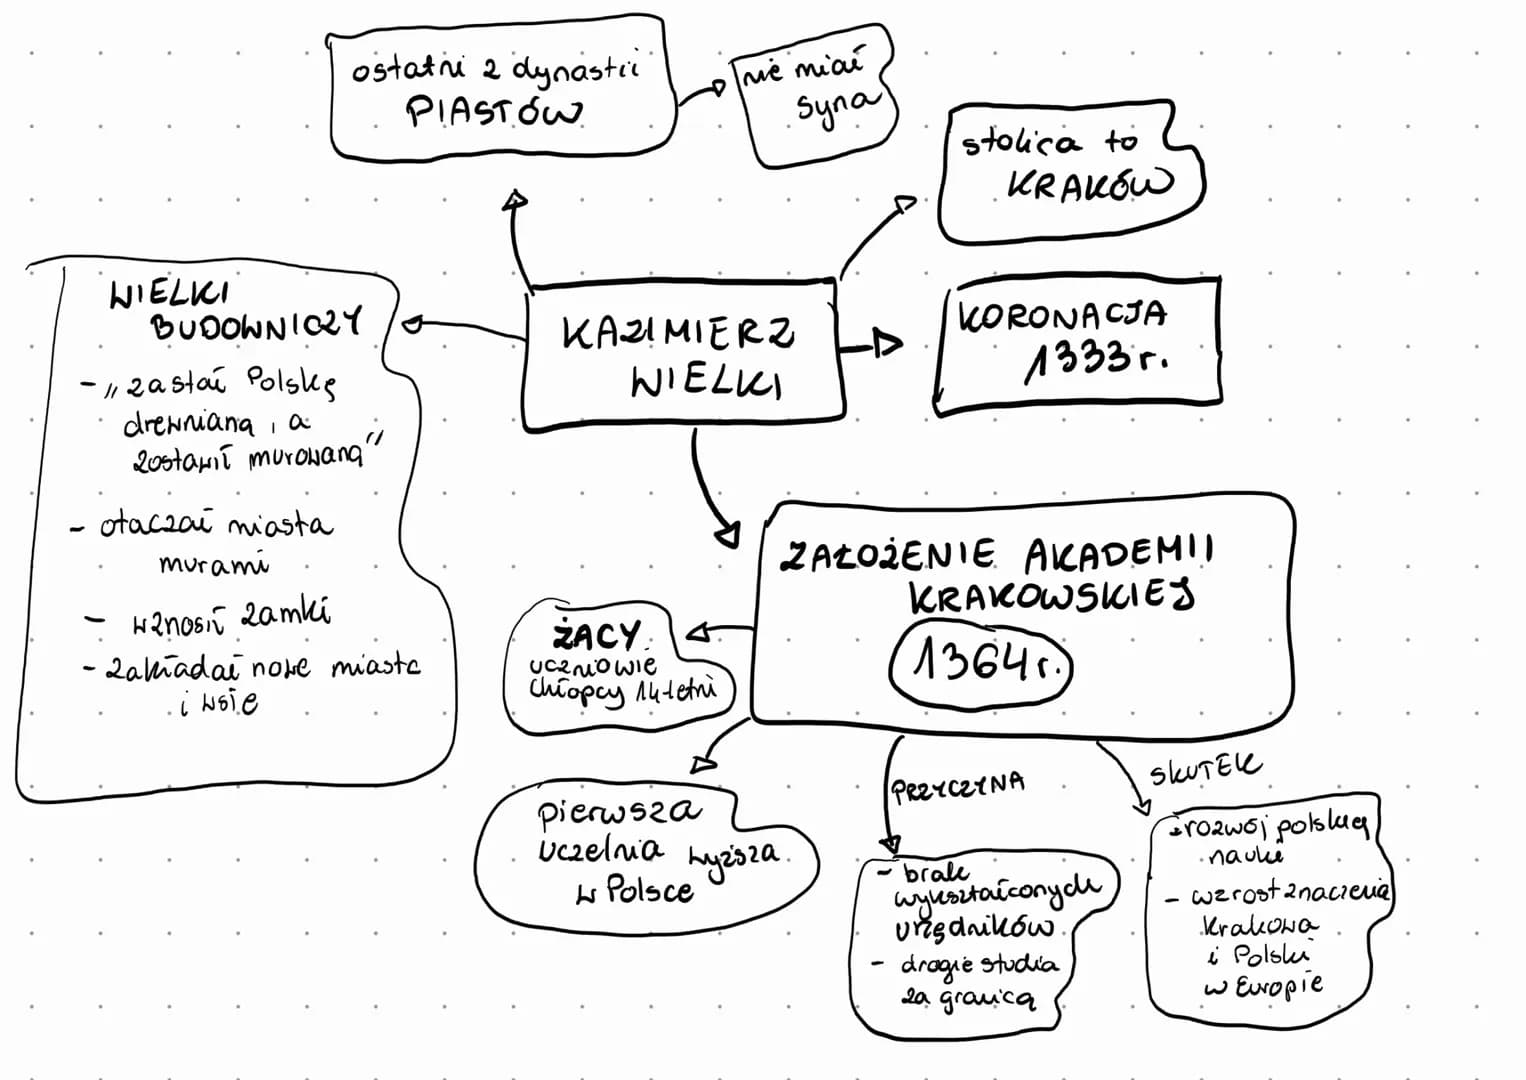 ostatni z dynastii
PIASTÓW
nie miał
syna
stolica to
KRAKÓW
KAZIMIERZ
WIELKI
KORONACJA
1333 r.
WIELKI
BUDOWNICZY
- „zastał Polskę
drewnianą, a
zostawił murowaną"
- otaczał miasta
murami
- wznosił zamki
- zakładał nowe miasta
i wsie
ZAŁOŻENIE AKADEMII
KRAKOWSKIEJ
1364 r.
ŻACY
uczniowie
chłopcy 14-letni
pierwsza
uczelnia wyższa
w Polsce
PRZYCZYNA
- brak
wykształconych
urzędników
- drogie studia
za granicą
SKUTEK
- rozwój polskiej
nauki
- wzrost znaczenia
Krakowa
i Polski
w Europie